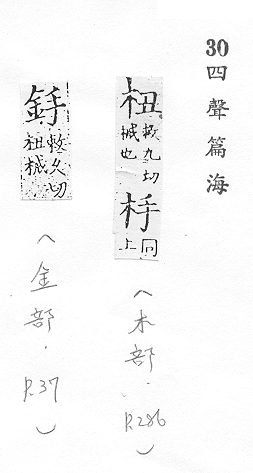 30四聲篇海
杻敕九切械也
杽同上
（木部．P.286）
釪敕久切杻械
（金部．P.37）